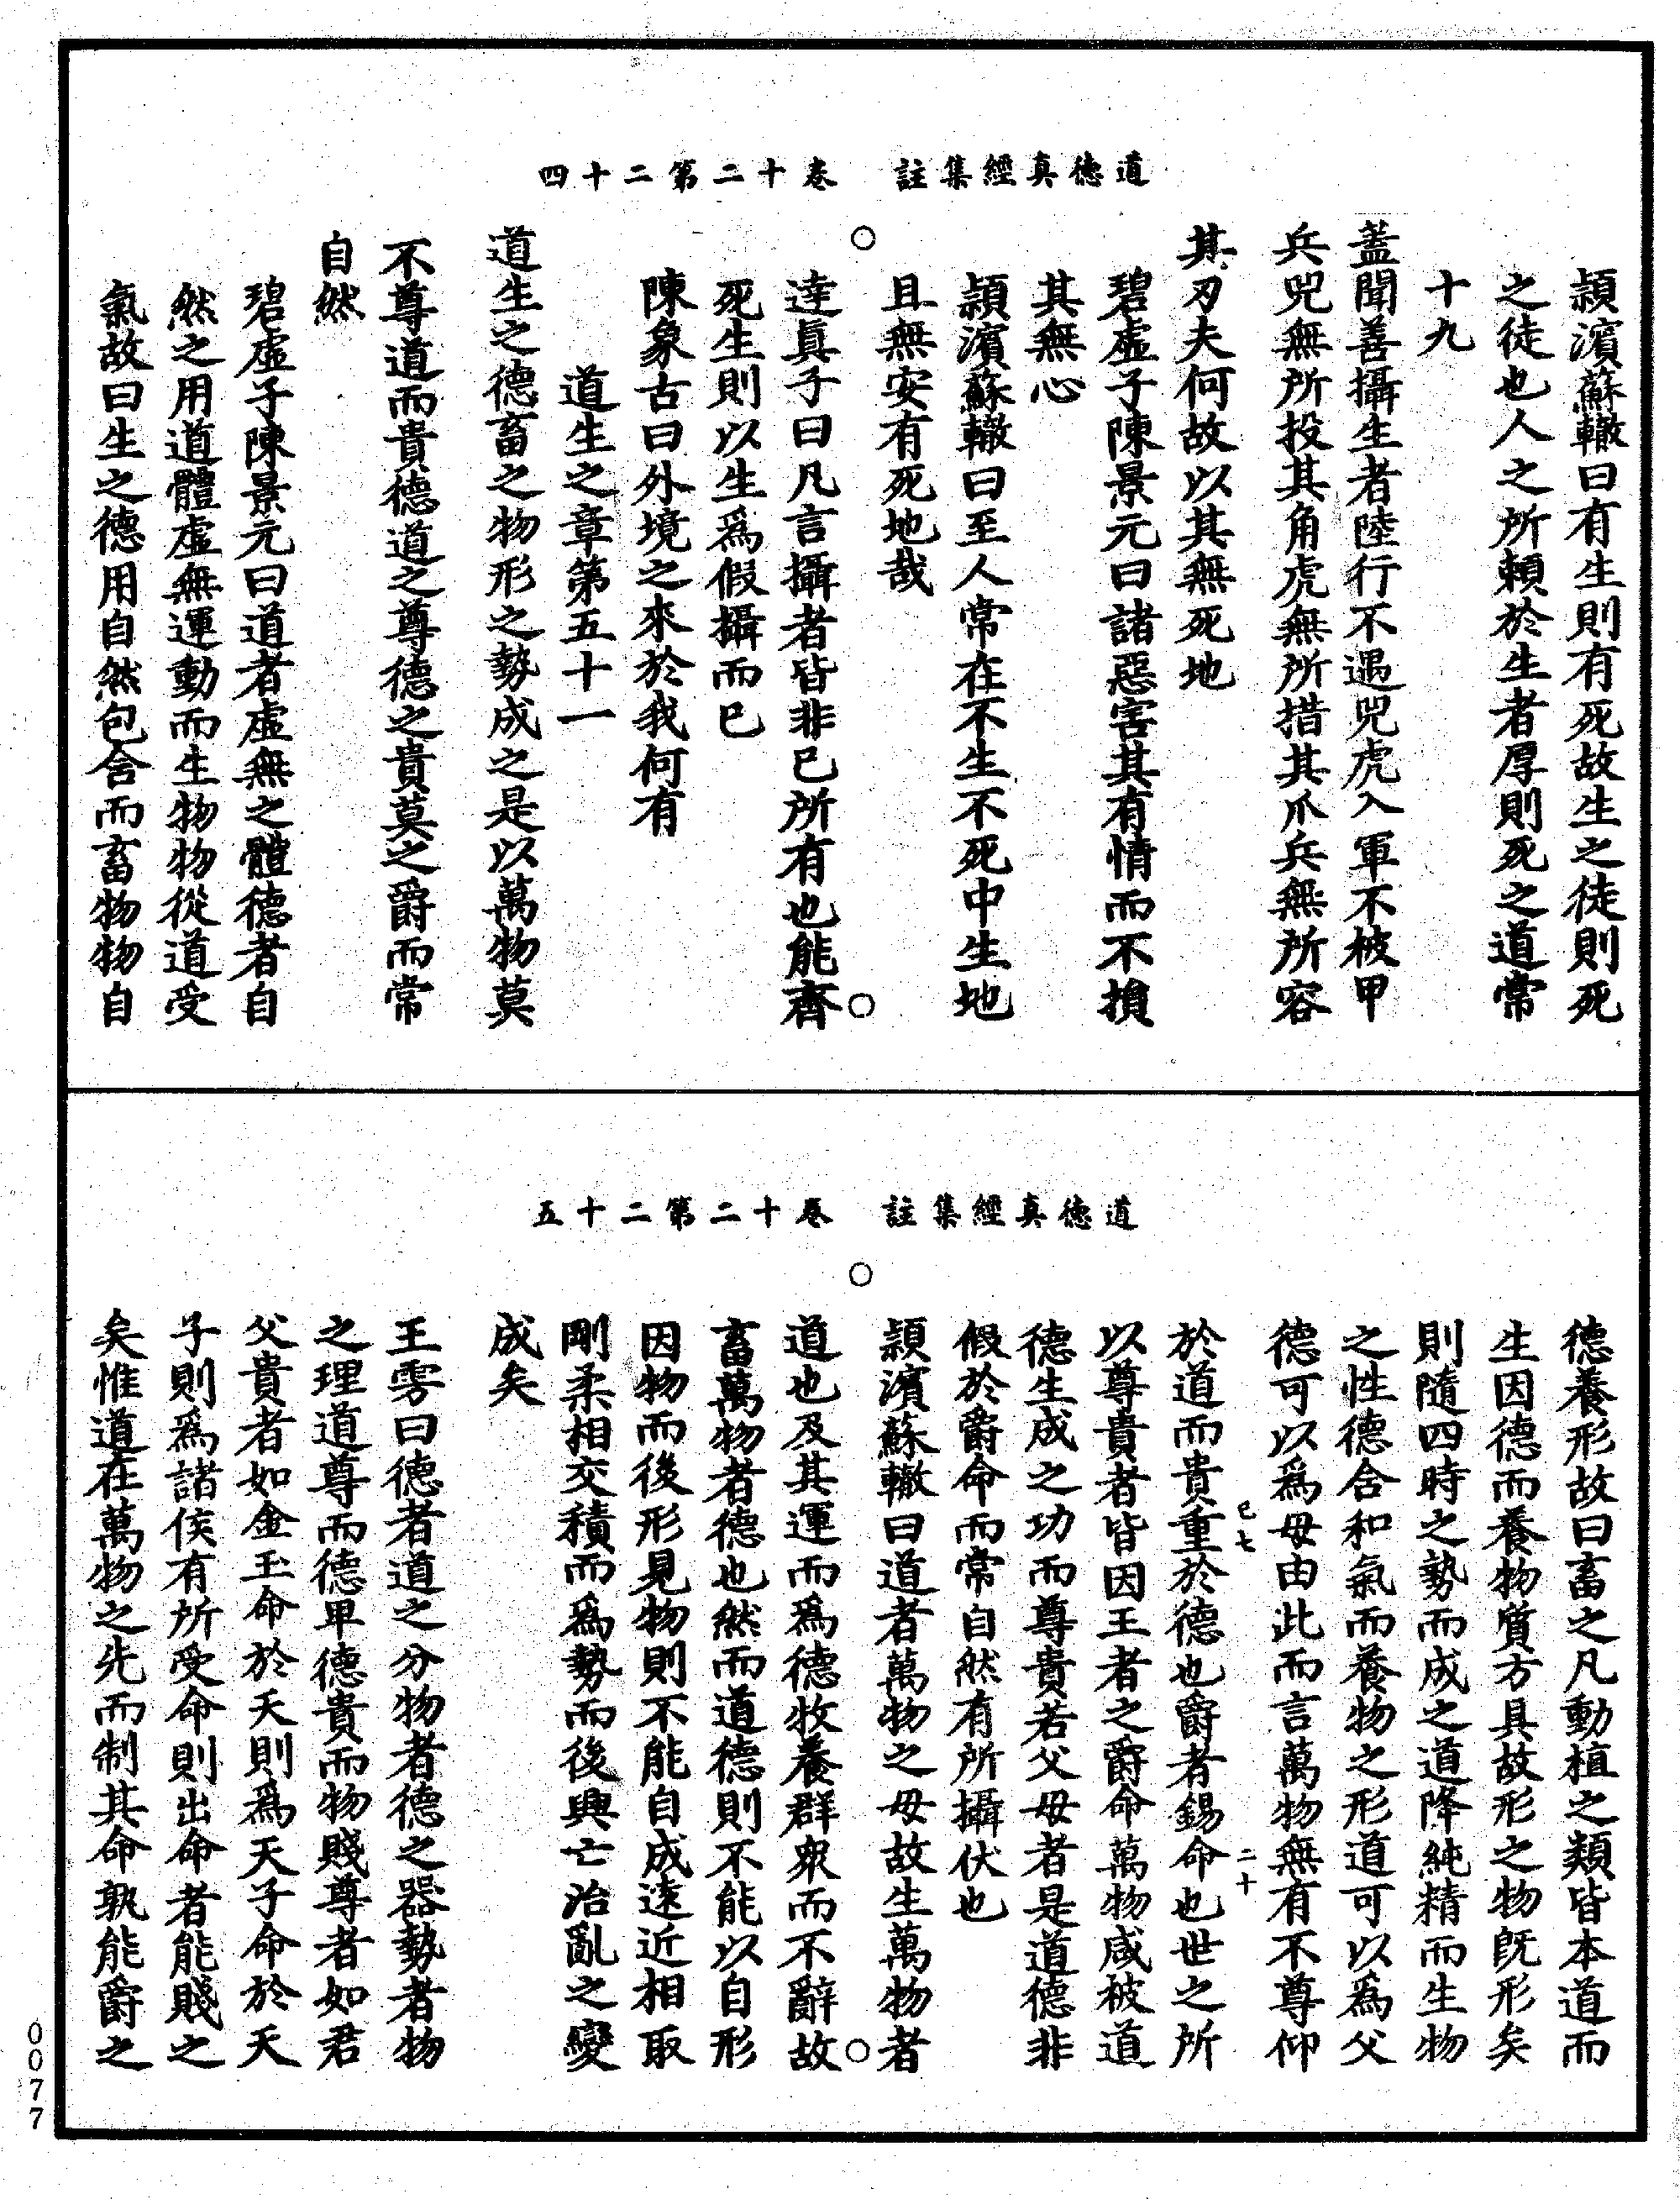 道德真經集註　卷十二第二十四
潁濱蘇轍曰有生則有死故生之徒則死
之徒也人之所賴於生者厚則死之道常
十九
蓋聞善攝生者陸行不遇兕虎入軍不被甲
兵兕無所投其角虎無所措其爪兵無所容
其刃夫何故以其無死地
碧虛子陳景元曰諸惡害其有情而不損
其無心
潁濱蘇轍曰至人常在不生不死中生地
且無安有死地哉
達眞子曰凡言攝者皆非已所有也能齊
死生則以生爲假攝而已
陳象古曰外境之來於我何有
道生之章第五十一
道生之德畜之物形之勢成之是以萬物莫
不尊道而貴德道之尊德之貴莫之爵而常
自然
碧虛子陳景元曰道者虛無之體德者自
然之用道體虛無運動而生物物從道受
氣故曰生之德用自然包含而畜物物自
道德真經集註　卷十二第二十五
德養形故曰畜之凡動植之類皆本道而
生因德而養物質方具故形之物旣形矣
則隨四時之勢而成之道降純精而生物
之性德含和氣而養物之形道可以爲父
德可以爲母由此而言萬物無有不尊仰
於道而貴重於德也爵者錫命也世之所
已七　二十
以尊貴者皆因王者之爵命萬物咸被道
德生成之功而尊貴若父母者是道德非
假於爵命而常自然有所攝伏也
潁濱蘇轍曰道者萬物之母故生萬物者
道也及其運而爲德牧養群衆而不辭故
畜萬物者德也然而道德則不能以自形
因物而後形見物則不能自成遠近相取
剛柔相交積而爲勢而後興亡治亂之變
成矣
王雱曰德者道之分物者德之器勢者物
之理道尊而德卑德貴而物賤尊者如君
父貴者如金玉命於天則爲天子命於天
子則爲諸侯有所受命則出命者能賤之
矣惟道在萬物之先而制其命孰能爵之
0077